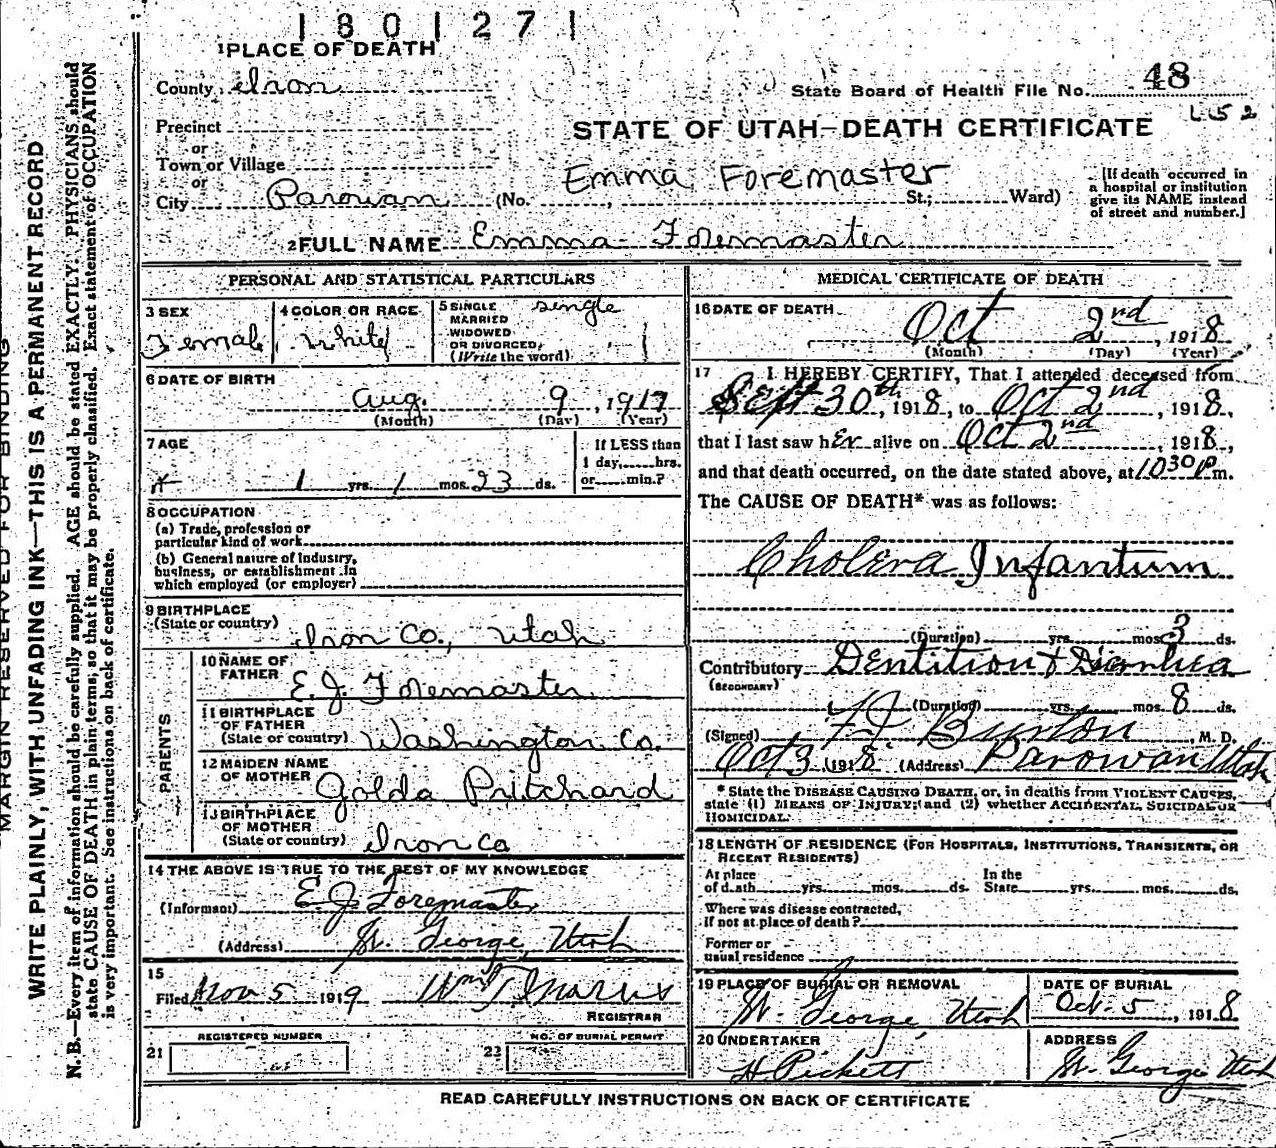 1 8 0 1 2 7 1
1 PLACE OF DEATH
County Iron
State Board of Health File No. 48
L 5 2
Precinct
or
Town or Village
or
City Parowan (No. St.; Ward)
STATE OF UTAH—DEATH CERTIFICATE
Emma Foremaster
[If death occurred in
a hospital or institution
give its NAME instead
of street and number.]
2 FULL NAME Emma Foremaster
PERSONAL AND STATISTICAL PARTICULARS
3 SEX
Female
4 COLOR OR RACE
White
5 SINGLE
MARRIED
WIDOWED
OR DIVORCED
(Write the word)
single
6 DATE OF BIRTH
Aug. 9, 1917
(Month) (Day) (Year)
7 AGE
1 yrs. 1 mos. 23 ds.
If LESS than
1 day, hrs.
or min.?
8 OCCUPATION
(a) Trade, profession or
particular kind of work
(b) General nature of industry,
business, or establishment in
which employed (or employer)
9 BIRTHPLACE
(State or country)
Iron Co., Utah
PARENTS
10 NAME OF
FATHER
E. J. Foremaster
11 BIRTHPLACE
OF FATHER
(State or country)
Washington Co.
12 MAIDEN NAME
OF MOTHER
Golda Pritchard
13 BIRTHPLACE
OF MOTHER
(State or country)
Iron Co
14 THE ABOVE IS TRUE TO THE BEST OF MY KNOWLEDGE
(Informant) E. J. Foremaster
(Address) St. George, Utah
15
Filed Nov 5 1919
REGISTRAR
REGISTERED NUMBER
21
NO. OF BURIAL PERMIT
22
MEDICAL CERTIFICATE OF DEATH
16 DATE OF DEATH
Oct 2nd, 1918
(Month) (Day) (Year)
17 I HEREBY CERTIFY, That I attended deceased from
Sept 30th, 1918, to Oct 2nd, 1918,
that I last saw her alive on Oct 2nd, 1918,
and that death occurred, on the date stated above, at 10 30 P m.
The CAUSE OF DEATH* was as follows:
Cholera Infantum
(Duration) yrs. mos. 3 ds.
Contributory Dentition + Diarrhea
(SECONDARY)
(Duration) yrs. mos. 8 ds.
(Signed) F J Burton, M. D.
Oct 3, 1918 (Address) Parowan Utah
* State the DISEASE CAUSING DEATH, or, in deaths from VIOLENT CAUSES,
state (1) MEANS OF INJURY; and (2) whether ACCIDENTAL, SUICIDAL OR
HOMICIDAL.
18 LENGTH OF RESIDENCE (FOR HOSPITALS, INSTITUTIONS, TRANSIENTS, OR
RECENT RESIDENTS)
At place
of death yrs. mos. ds.
In the
State yrs. mos. ds.
Where was disease contracted,
if not at place of death?
Former or
usual residence
19 PLACE OF BURIAL OR REMOVAL
St. George, Utah
DATE OF BURIAL
Oct. 5, 1918.
20 UNDERTAKER
H Pickett
ADDRESS
St. George Utah
READ CAREFULLY INSTRUCTIONS ON BACK OF CERTIFICATE
MARGIN RESERVED FOR BINDING
WRITE PLAINLY, WITH UNFADING INK—THIS IS A PERMANENT RECORD
N. B.—Every item of information should be carefully supplied. AGE should be stated EXACTLY. PHYSICIANS should
state CAUSE OF DEATH in plain terms, so that it may be properly classified. Exact statement of OCCUPATION
is very important. See instructions on back of certificate.